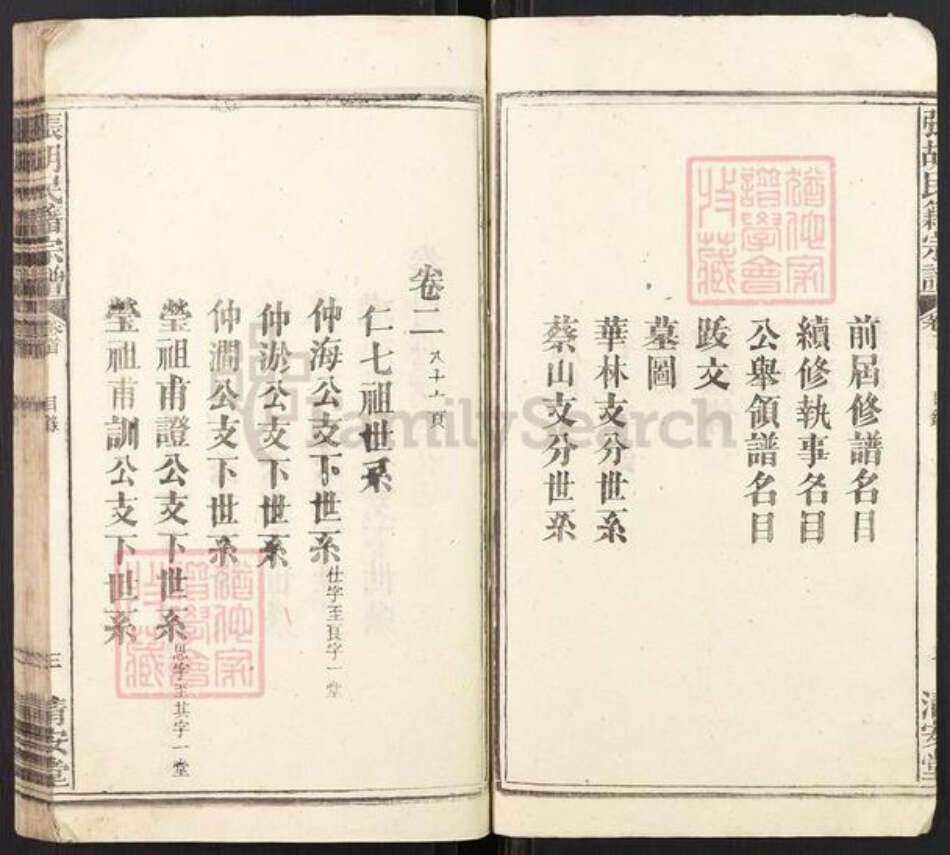 前屆修譜名目
續修執事名目
公舉領譜名目
跋文
墓圖
華林支分世系
蔡山支分世系
張胡氏籍宗譜
卷二
仁七祖世系
仲海公支下世系 仕字至良字一堂
仲淤公支下世系
仲澗公支下世系
瑩祖甫證公支下世系 思字至其字一堂
瑩祖甫訓公支下世系
張胡氏籍宗譜 卷首 目錄 三 清安堂
猶他家譜學會收藏
猶他家譜學會收藏
FamilySearch